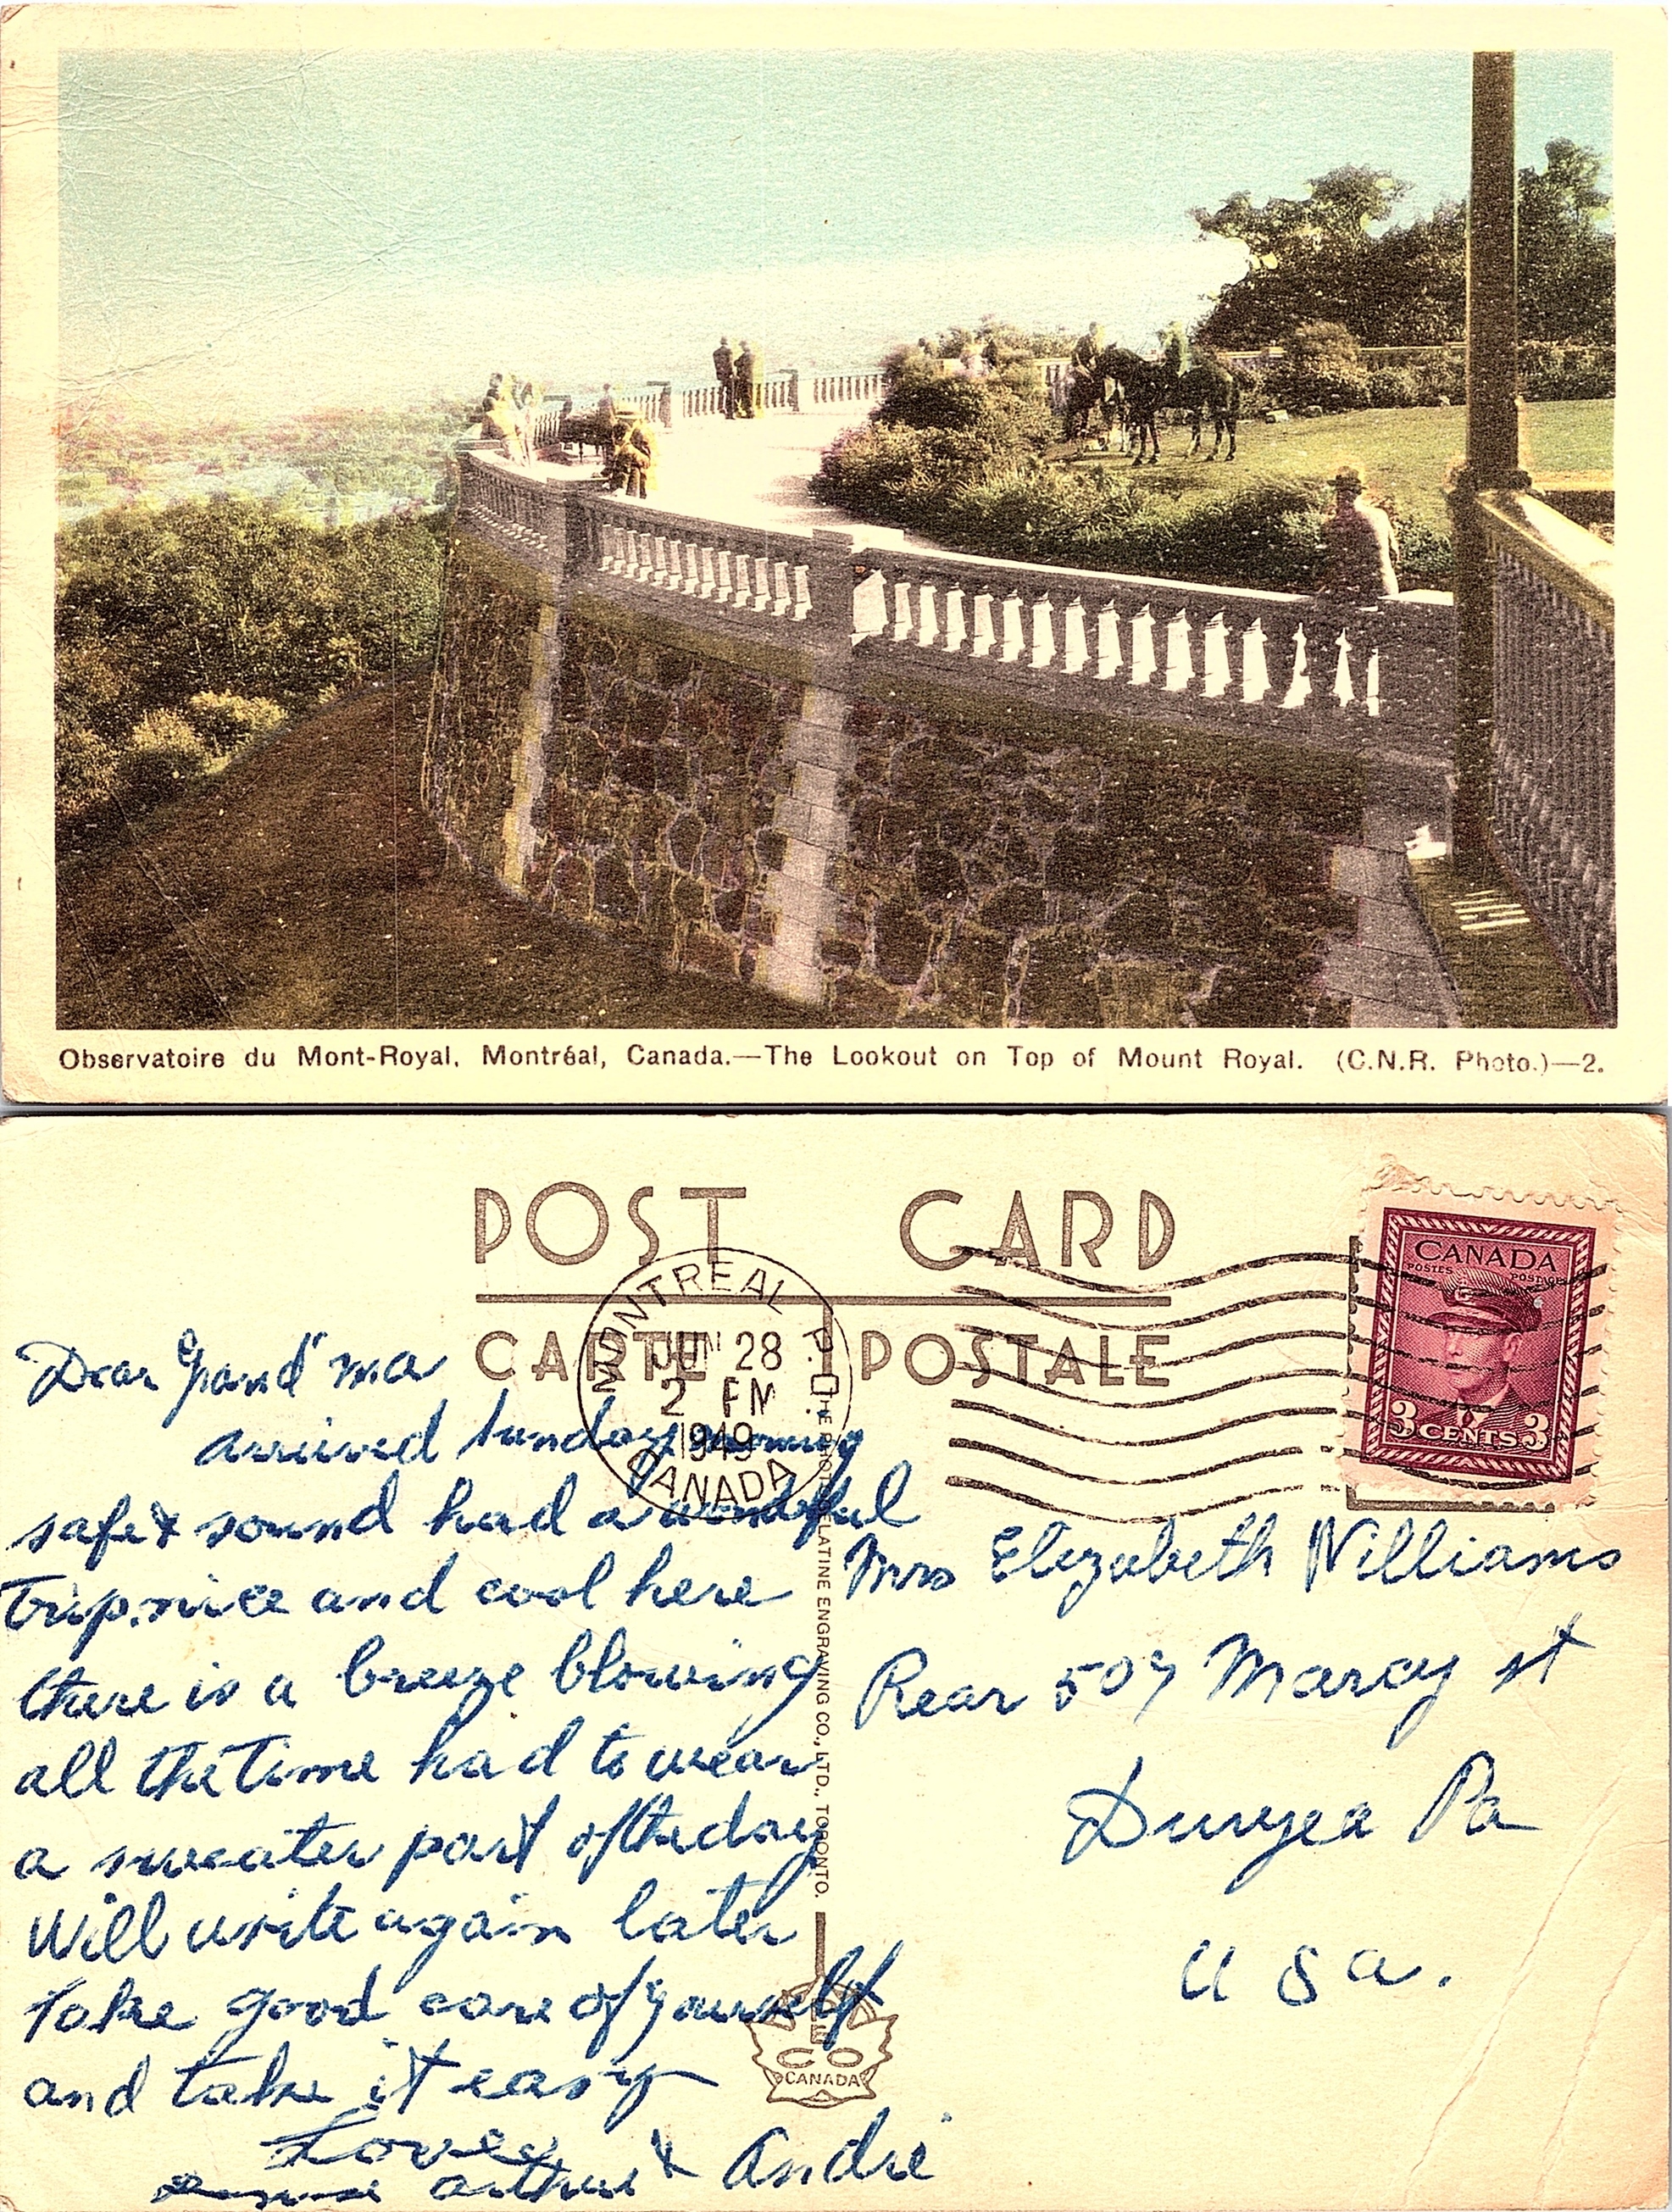 Observatoire du Mont-Royal, Montréal, Canada.—The Lookout on Top of Mount Royal. (C.N.R. Photo.)—2.
POST CARD
CARTE POSTALE
MONTREAL P.Q.
JUN 28
2 PM
1949
CANADA
CANADA
POSTES POSTAGE
3 CENTS 3
Dear Grand'ma
arrived Sunday morning
safe & sound had a wonderful
Trip. nice and cool here
there is a breeze blowing
all the Time had to wear
a sweater part of the day
Will write again later
Take good care of yourself
and take it easy
Love
Arthur & André
Mrs Elizabeth Williams
Rear 507 Marcy st
Duryea Pa
U S a.
LATINE ENGRAVING CO., LTD., TORONTO.
PECO
CANADA